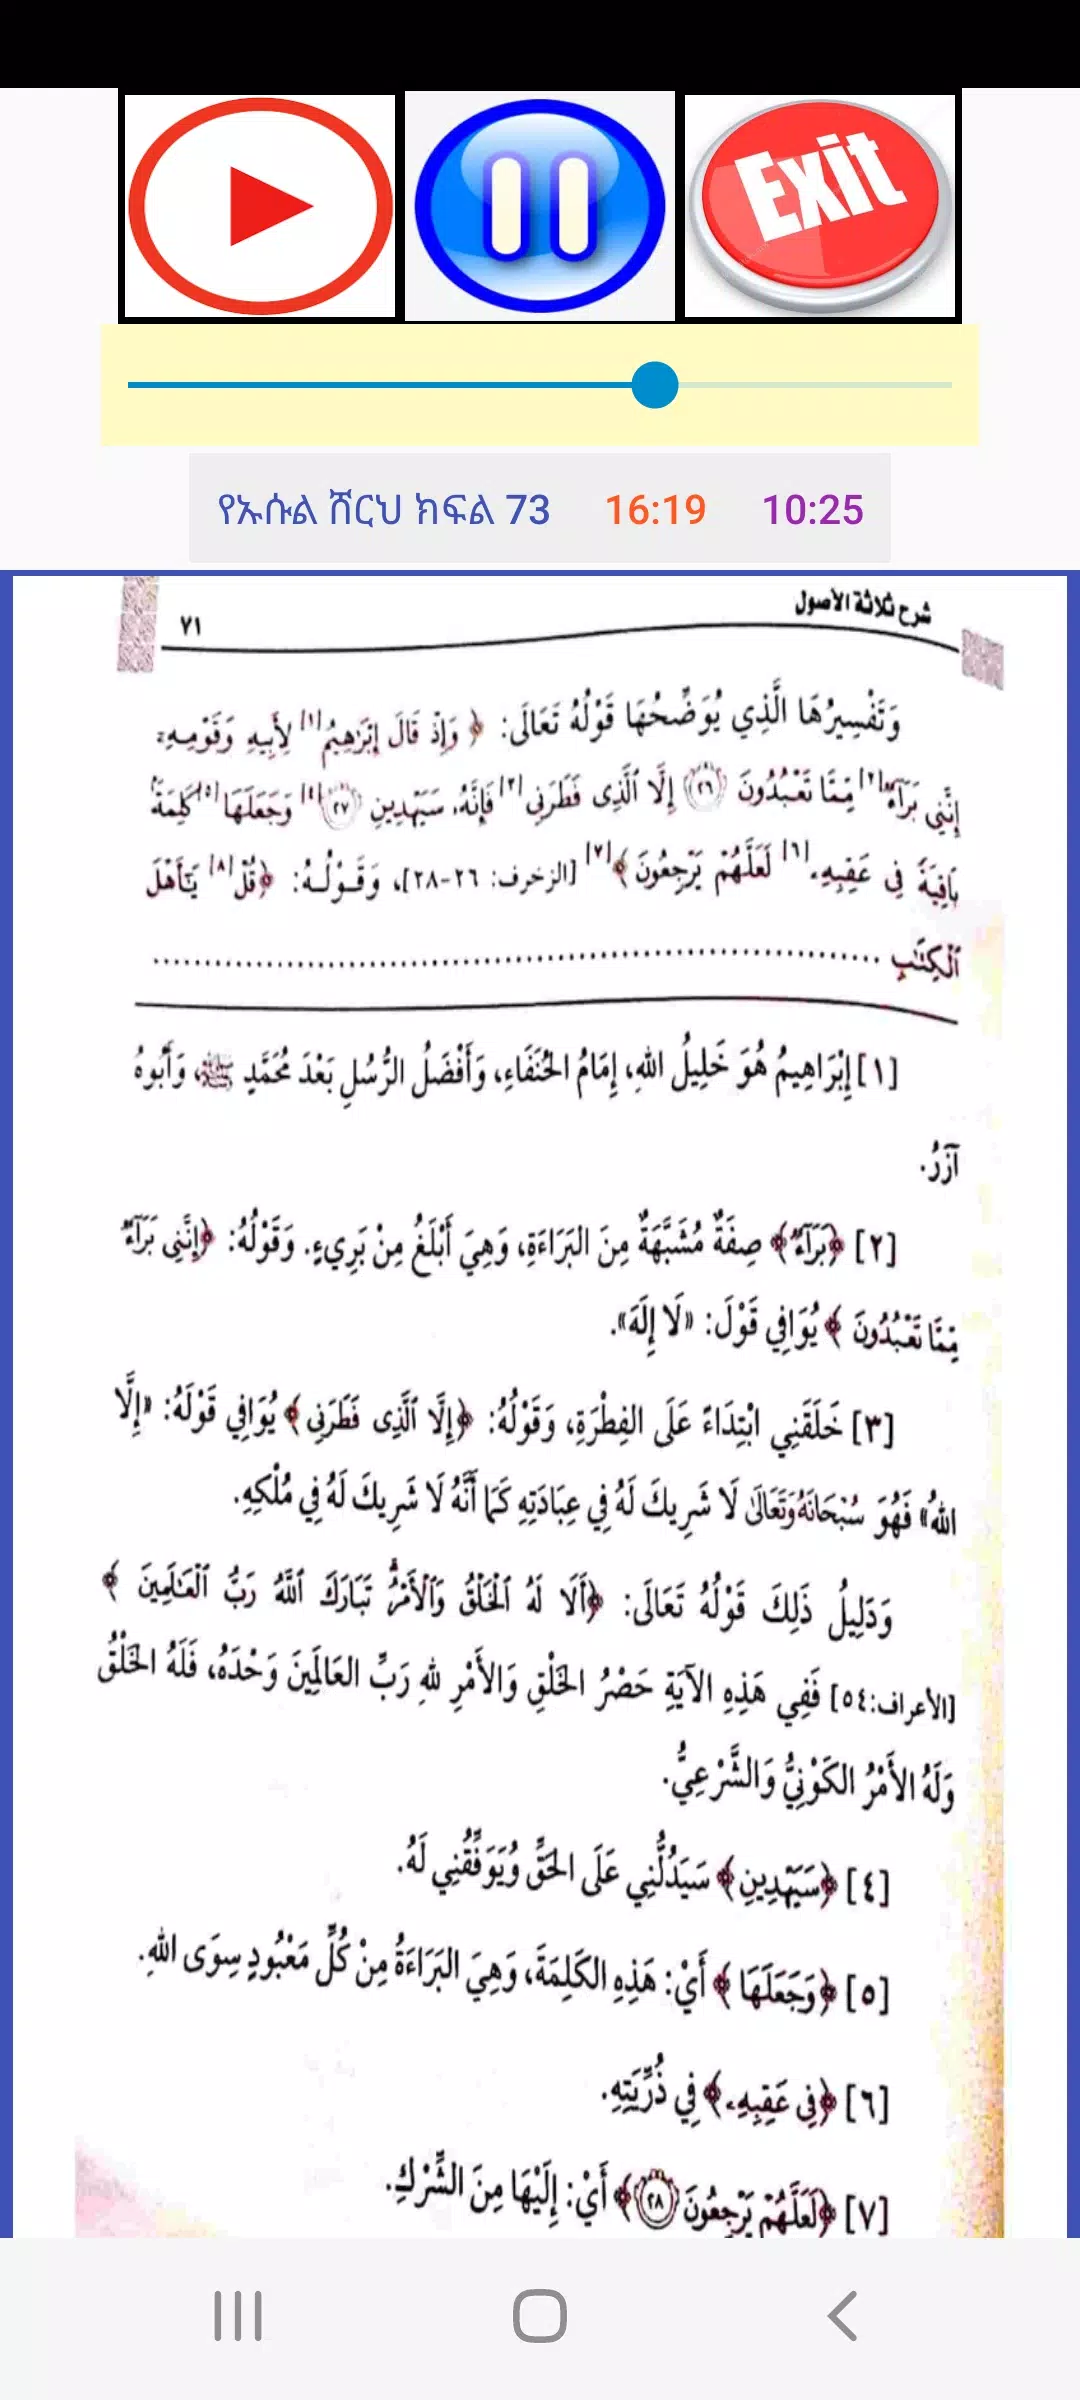 Exit
የኡሱል ሸርህ ክፍል 73 16:19 10:25
شرح ثلاثة الأصول ٧١
وَتَفْسِيرُهَا الَّذِي يُوَضِّحُهَا قَوْلُهُ تَعَالَى: ﴿ وَإِذْ قَالَ إِبْرَٰهِيمُ[١] لِأَبِيهِ وَقَوْمِهِۦٓ
إِنَّنِي بَرَآءٌ[٢] مِّمَّا تَعْبُدُونَ ٢٦ إِلَّا ٱلَّذِى فَطَرَنِى[٣] فَإِنَّهُۥ سَيَهْدِينِ ٢٧ [٤] وَجَعَلَهَا[٥] كَلِمَةًۢ
بَاقِيَةً فِى عَقِبِهِۦ[٦] لَعَلَّهُمْ يَرْجِعُونَ ﴾[٧] [الزخرف: ٢٦-٢٨]، وَقَوْلُهُ: ﴿قُلْ[٨] يَٰٓأَهْلَ
ٱلْكِتَٰبِ ........................................
[١] إِبْرَاهِيمُ هُوَ خَلِيلُ اللهِ، إِمَامُ الحُنَفَاءِ، وَأَفْضَلُ الرُّسُلِ بَعْدَ مُحَمَّدٍ ﷺ، وَأَبُوهُ
آزَرُ.
[٢] ﴿بَرَآءٌ﴾ صِفَةٌ مُشَبَّهَةٌ مِنَ البَرَاءَةِ، وَهِيَ أَبْلَغُ مِنْ بَرِيءٍ. وَقَوْلُهُ: ﴿إِنَّنِى بَرَآءٌ
مِّمَّا تَعْبُدُونَ ﴾ يُوَافِي قَوْلَ: «لَا إِلَهَ».
[٣] خَلَقَنِي ابْتِدَاءً عَلَى الفِطْرَةِ، وَقَوْلُهُ: ﴿إِلَّا ٱلَّذِى فَطَرَنِى ﴾ يُوَافِي قَوْلَهُ: «إِلَّا
اللهُ» فَهُوَ سُبْحَانَهُ وَتَعَالَى لَا شَرِيكَ لَهُ فِي عِبَادَتِهِ كَمَا أَنَّهُ لَا شَرِيكَ لَهُ فِي مُلْكِهِ.
وَدَلِيلُ ذَلِكَ قَوْلُهُ تَعَالَى: ﴿أَلَا لَهُ ٱلْخَلْقُ وَٱلْأَمْرُ تَبَارَكَ ٱللَّهُ رَبُّ ٱلْعَٰلَمِينَ ﴾
[الأعراف:٥٤] فَفِي هَذِهِ الآيَةِ حَصْرُ الخَلْقِ وَالأَمْرِ للهِ رَبِّ العَالَمِينَ وَحْدَهُ، فَلَهُ الخَلْقُ
وَلَهُ الأَمْرُ الكَوْنِيُّ وَالشَّرْعِيُّ.
[٤] ﴿سَيَهْدِينِ ﴾ سَيَدُلُّنِي عَلَى الحَقِّ وَيُوَفِّقُنِي لَهُ.
[٥] ﴿وَجَعَلَهَا ﴾ أَيْ: هَذِهِ الكَلِمَةَ، وَهِيَ البَرَاءَةُ مِنْ كُلِّ مَعْبُودٍ سِوَى اللهِ.
[٦] ﴿فِى عَقِبِهِۦ ﴾ فِي ذُرِّيَّتِهِ.
[٧] ﴿لَعَلَّهُمْ يَرْجِعُونَ ٢٨﴾ أَيْ: إِلَيْهَا مِنَ الشِّرْكِ.